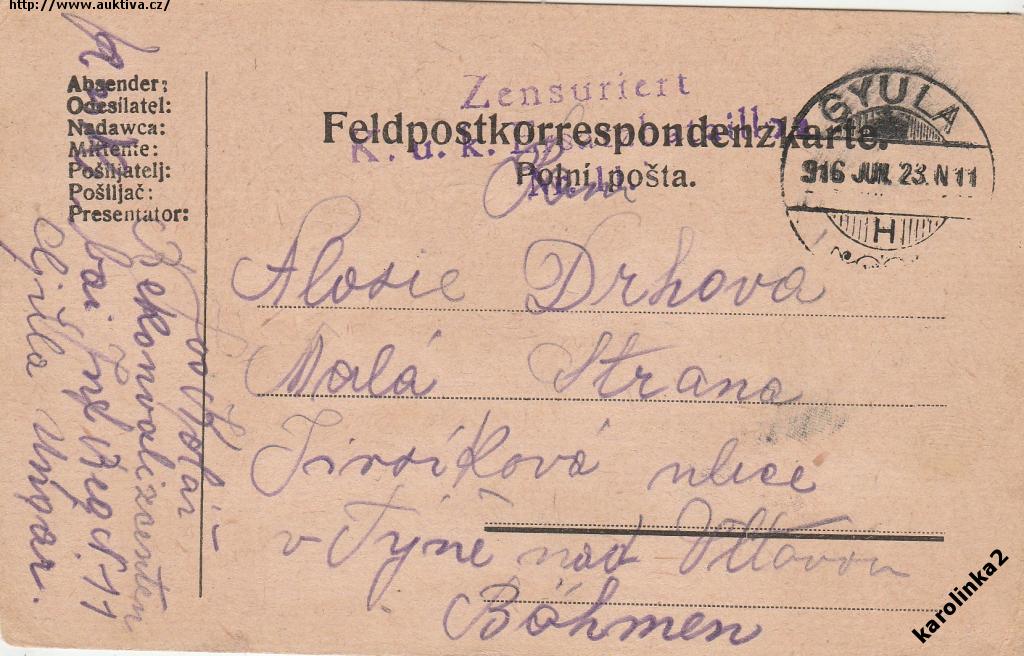 http://www.auktiva.cz/
Absender:
Odesílatel:
Nadawca:
Mittente:
Pošiljatelj:
Pošiljač:
Presentator:
Zensuriert
Feldpostkorrespondenzkarte.
K. u. k.
Polní pošta.
GYULA
916 JUN. 23. N 11
H
Alosie Drhova
Malá Strana
Jirsíková ulice
v Týně nad Vltavou
Böhmen
Rekonvalizcenten
Inf Reg N 11
Gjula Ungar.
karolinka2